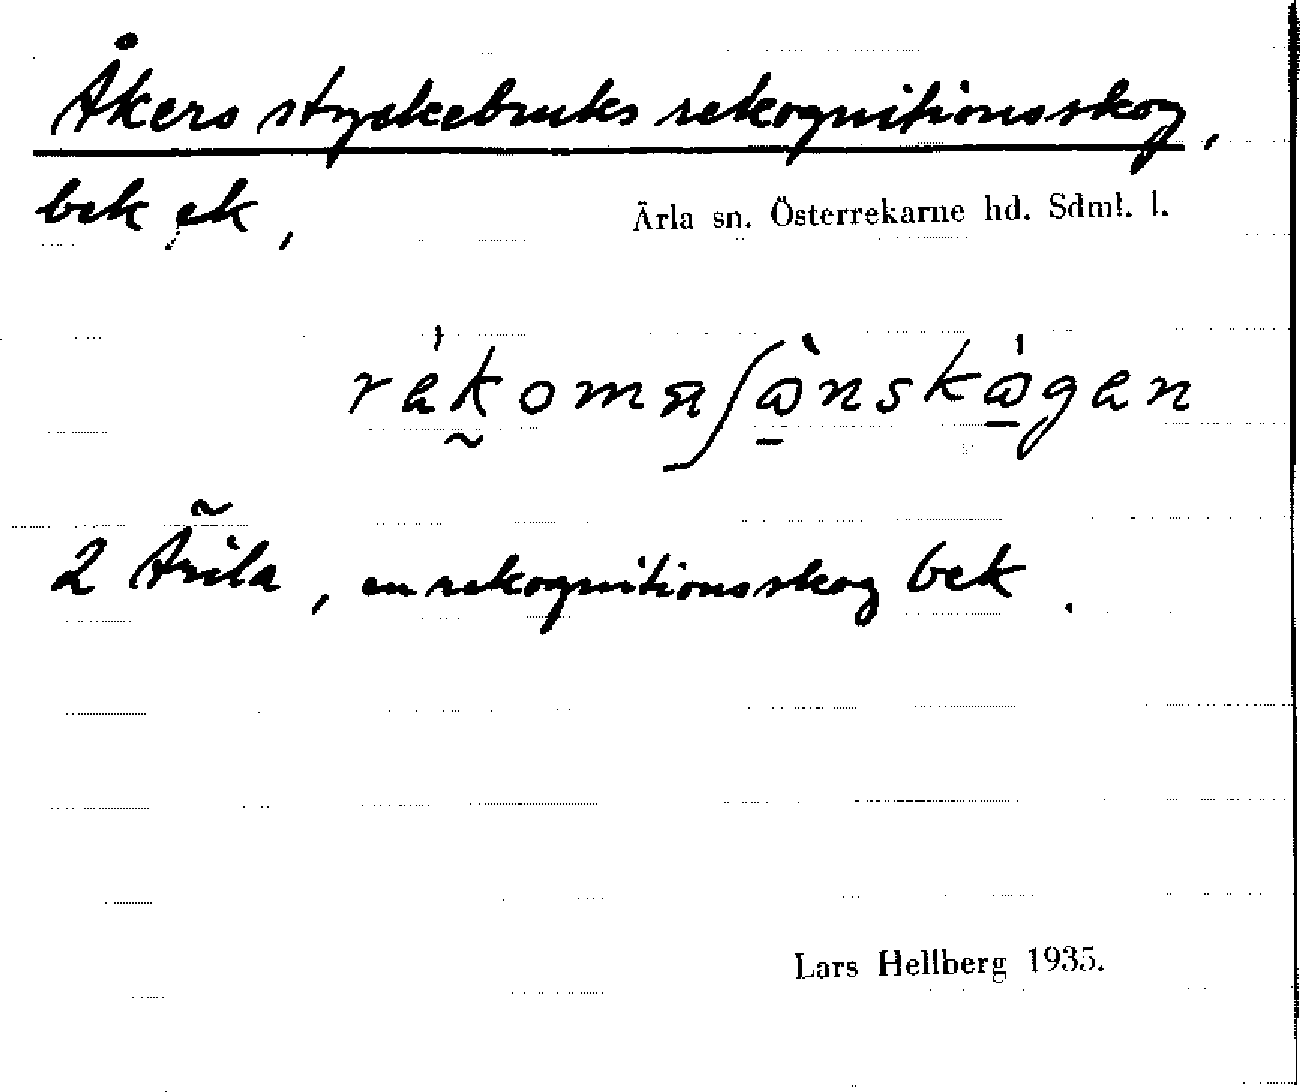 Åkers styckebruks rekognitionsskog,
bek ek,
Ärla sn. Österrekarne hd. Sdml. l.
2 Ärila, en rekognitionsskog bek.
Lars Hellberg 1935.